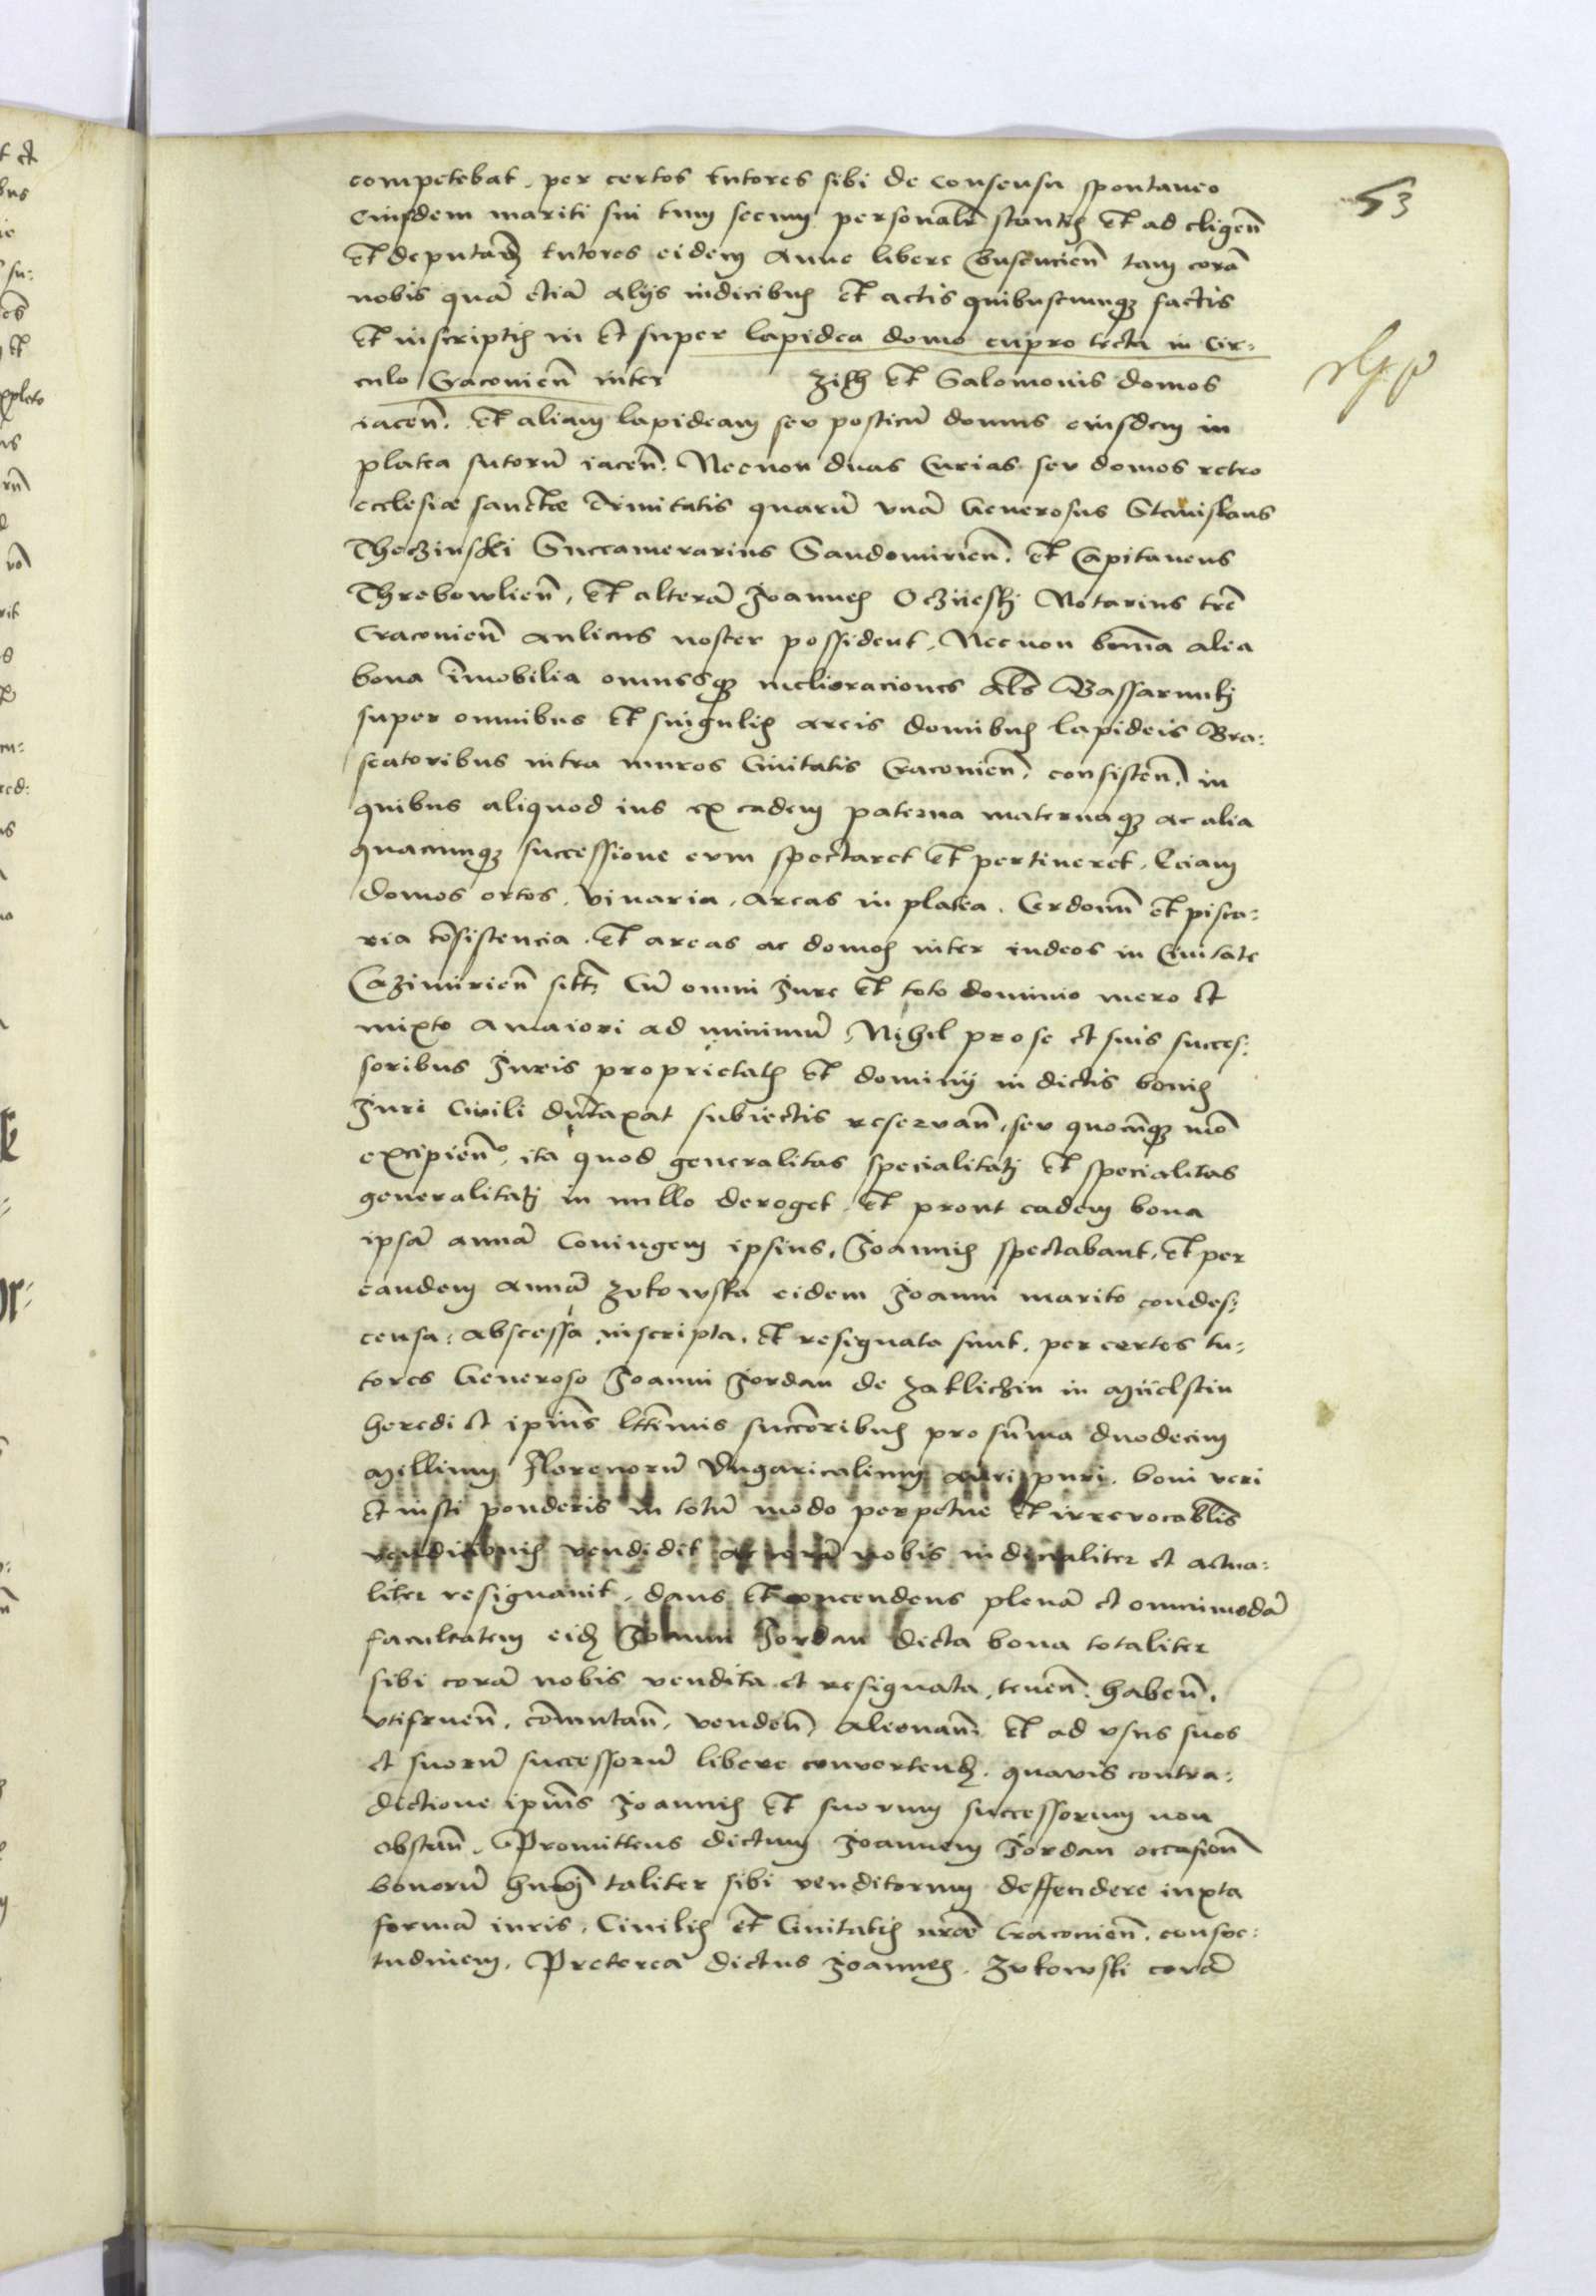 53
competebat, per certos tutores sibi de consensu spontaneo
Eiusdem mariti sui tum secum personalr stantis Et ad eligenn
Et deputand tutores eidem Anne libere Consencienn tam corā
nobis quā etiā alijs iudicibus Et actis quibuscunque factis
Et inscriptis in Et super lapidea domo cupro tecta in Cir:
culo Cracouienn inter Et Salomonis domos
iacenn. Et aliam lapideam seu posticū domus eiusdem in
platea sutorū iacenn. Necnon duas Curias seu domos retro
ecclesiæ sanctæ Trinitatis quarū vnā Generosus Stanislaus
Theczinski Succamerarius Sandomirienn. Et Capitaneus
Threbowlienn, Et alterā Joannes Oczieski Notarius trē
Cracouienn aulicus noster possident, Necnon alia
bona īmobilia omnesque melioraciones als Bassarunki
super omnibus Et singulis areis domibus lapideis Bra:
seatoribus intra muros Ciuitatis Cracouienn, consistenn, in
quibus aliquod ius ex eadem paterna maternaque ac alia
quacunque successione eum spectaret Et pertineret, Eciam
domos ortos, vinaria, areas in platea, Cerdonū et pisca:
ria cōsistencia, Et areas ac domos inter iudeos in Ciuitate
Cazimirienn sitt, Cū omni Jure Et toto dominio mero et
mixto a maiori ad minimū, Nihil pro se et suis succes:
soribus Juris proprietatis Et dominij in dictis bonis
Juri Ciuili duntaxat subiectis reseruann, seu quocunque mō
excipienn, ita quod generalitas specialitati Et specialitas
generalitati in nullo deroget, Et prout eadem bona
ipsā annā Coniugem ipsius, Joannis spectabant, Et per
eandem annā Zukowska eidem Joanni marito condes:
censa: abscessa, inscripta, Et resignata sunt, per certos tu:
tores Generoso Joanni Jordan de Zaklichin in Mielstin
heredi et ipius lttimis succoribus pro sūma duodecim
Millium Florenorū Vngaricalium auri puri, boni veri
Et iusti ponderis in totū modo perpetue Et irreuocablis
vendicionis vendidit ac corā nobis iudicialiter et actua:
liter resignauit, dans Et concendens plenā et omnimodā
facultatem eid Joanni Jordan dicta bona totaliter
sibi corā nobis vendita et resignata, tenenn, habenn,
vtifruenn, cōmutann, vendenn, alienann, Et ad vsus suos
et suorū successorū libere conuertend, quauis contra:
dictione ipius Joannis Et suorum successorum non
obstann, Promittens dictum Joannem Jordan occasionn
bonorū huiusmodi taliter sibi venditorum deffendere iuxta
formā iuris, Ciuilis Et Ciuitatis nræ Cracouienn, consue:
tudinem, Preterea dictus Joannes, Zukowski corā